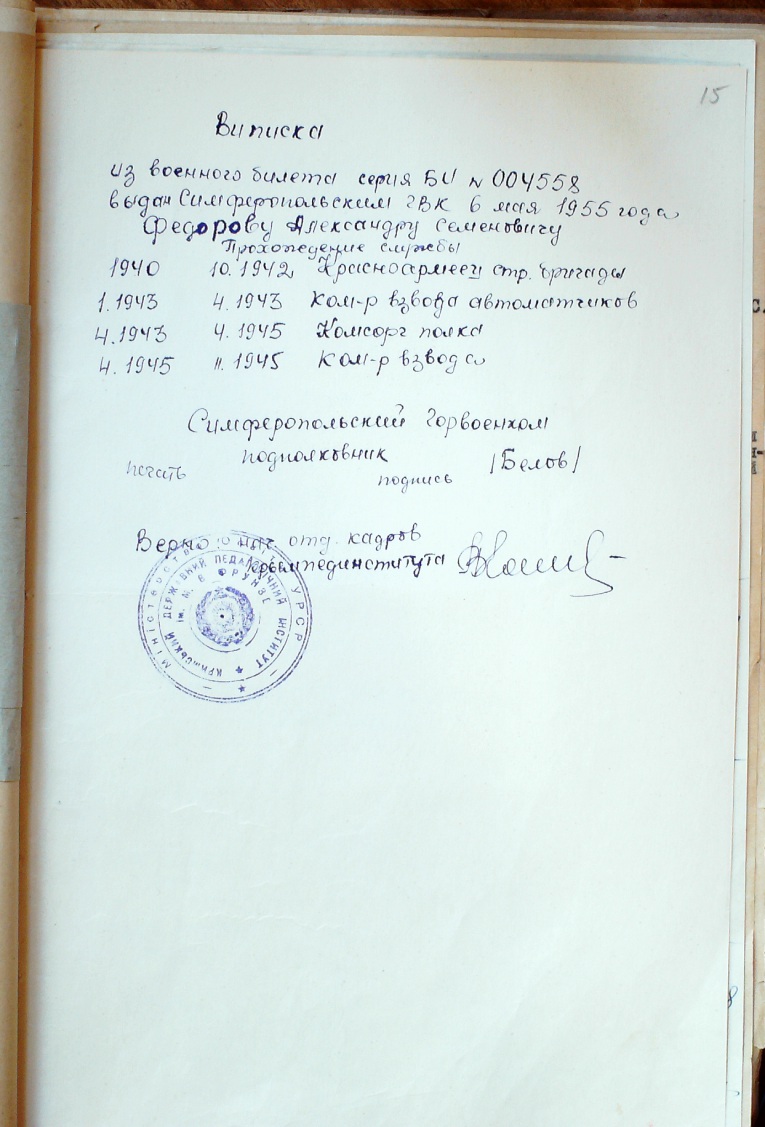 15
Виписка
из военного билета серия БИ № 004558
выдан Симферопольским ГВК 6 мая 1955 года
Федорову Александру Семеновичу
Прохождение службы
1940 10.1942 Красноармеец стр. бригады
1.1943 4.1943 Ком-р взвода автоматчиков
4.1943 4.1945 Комсорг полка
4.1945 11.1945 Ком-р взвода
Симферопольский Горвоенком
подполковник /Белов/
печать подпись
Верно: Нач. отд. кадров
Крымпединститута
Міністерство УРСР
КРИМСЬКИЙ ДЕРЖАВНИЙ ПЕДАГОГІЧНИЙ ІНСТИТУТ
ім. М. В. ФРУНЗЕ